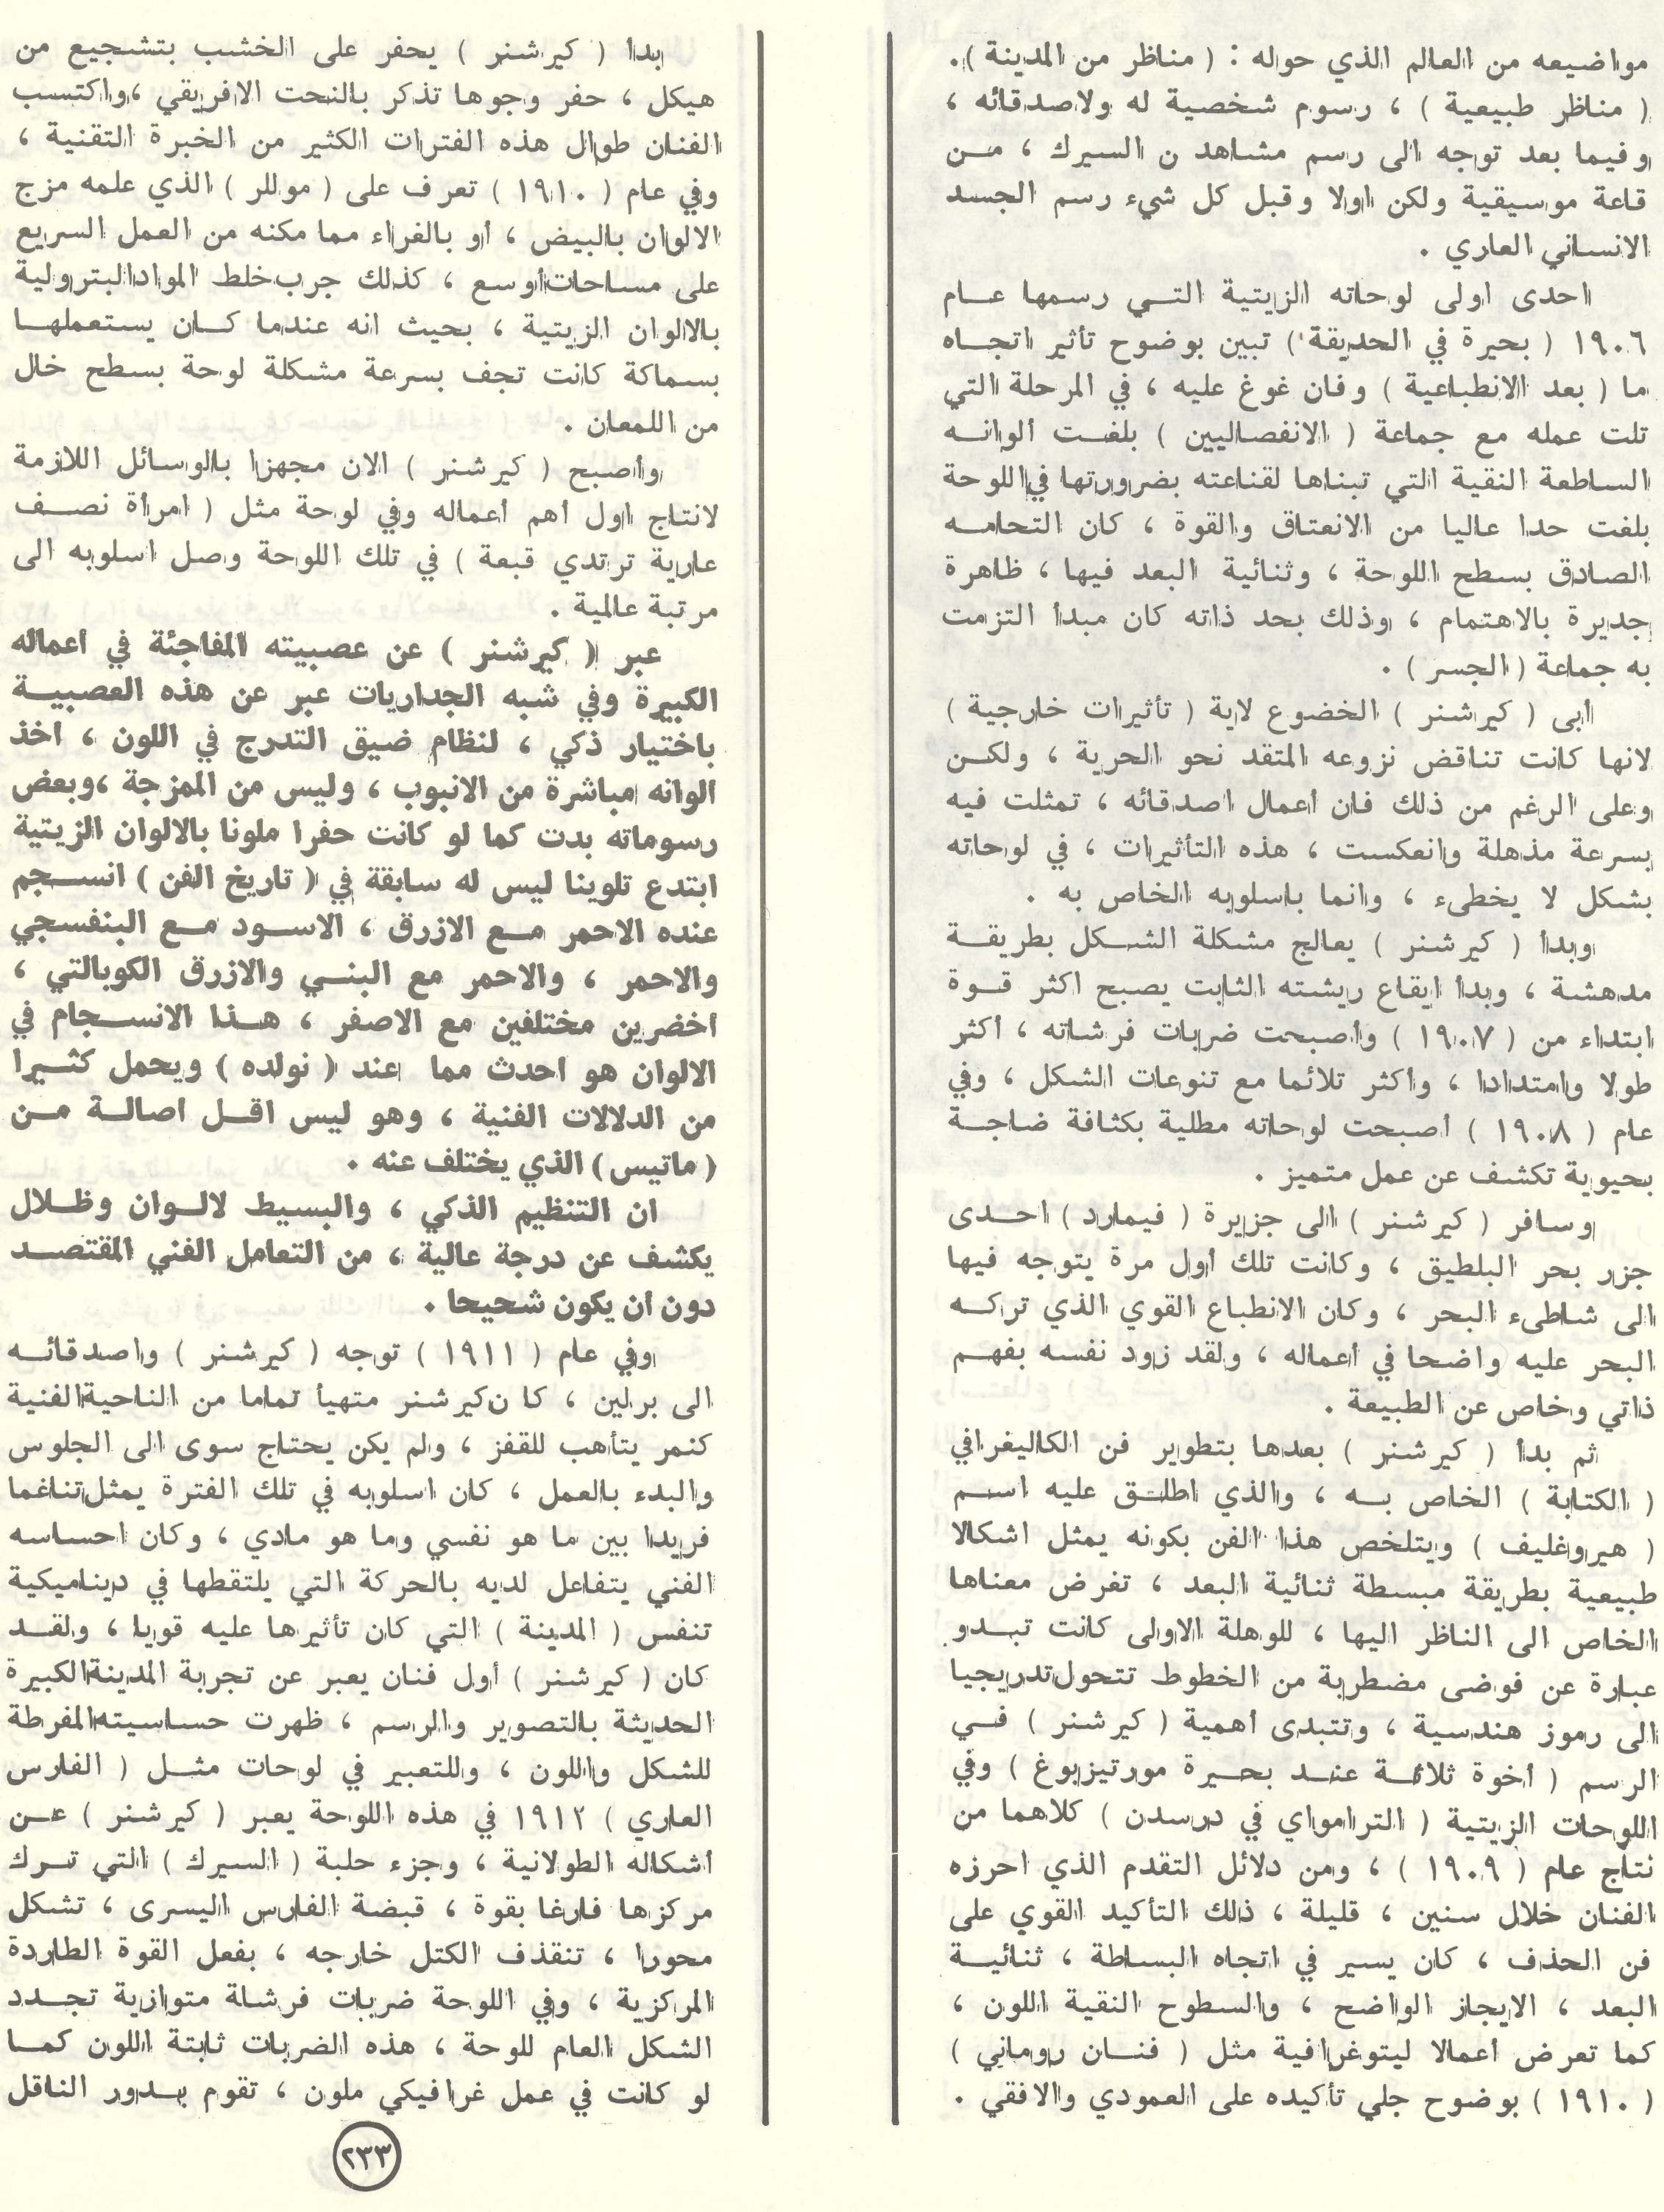 مواضيعه من العالم الذي حوله : ( مناظر من المدينة ).
( مناظر طبيعية ) ، رسوم شخصية له ولاصدقائه ،
وفيما بعد توجه الى رسم مشاهد ن السيرك ، مـن
قاعة موسيقية ولكن اولا وقبل كل شيء رسم الجسد
الانساني العاري .
احدى اولى لوحاته الزيتية التـي رسمها عـام
١٩٠٦ ( بحيرة في الحديقة ) تبين بوضوح تأثير اتجـاه
ما ( بعد الانطباعية ) وفان غوغ عليه ، في المرحلة التي
تلت عمله مع جماعة ( الانفصاليين ) بلغـت ألوانـه
الساطعة النقية التي تبناها لقناعته بضرورتها في اللوحة
بلغت حدا عاليا من الانعتاق والقوة ، كان التحامـه
الصادق بسطح اللوحة ، وثنائية البعد فيها ، ظاهرة
جديرة بالاهتمام ، وذلك بحد ذاته كان مبدأ التزمت
به جماعة ( الجسر ) .
أبى ( كيرشنر ) الخضوع لاية ( تأثيرات خارجية )
لانها كانت تناقض نزوعه المتقد نحو الحرية ، ولكـن
وعلى الرغم من ذلك فان أعمال اصدقائه ، تمثلت فيه
بسرعة مذهلة وانعكست ، هذه التأثيرات ، في لوحاته
بشكل لا يخطىء ، وانما باسلوبه الخاص به .
وبدأ ( كيرشنر ) يعالج مشكلة الشـكل بطريقـة
مدهشة ، وبدأ ايقاع ريشته الثابت يصبح اكثر قـوة
ابتداء من ( ١٩٠٧ ) وأصبحت ضربات فرشاته ، أكثر
طولا وامتدادا ، وأكثر تلائما مع تنوعات الشكل ، وفي
عام ( ١٩٠٨ ) أصبحت لوحاته مطلية بكثافة ضاجـة
بحيوية تكشف عن عمل متميز .
وسافر ( كيرشنر ) الى جزيرة ( فيمارد ) احـدى
جزر بحر البلطيق ، وكانت تلك أول مرة يتوجه فيها
الى شاطىء البحر ، وكان الانطباع القوي الذي تركـه
البحر عليه واضحا في أعماله ، ولقد زود نفسه بفهـم
ذاتي وخاص عن الطبيعة .
ثم بدأ ( كيرشنر ) بعدها بتطوير فن الكاليغرافي
( الكتابة ) الخاص بـه ، والذي اطلـق عليه اسـم
( هيروغليف ) ويتلخص هذا الفن بكونه يمثل اشكالا
طبيعية بطريقة مبسطة ثنائية البعد ، تفرض معناها
الخاص الى الناظر اليها ، للوهلة الاولى كانت تبـدو
عبارة عن فوضى مضطربة من الخطوط تتحول تدريجيا
الى رموز هندسية ، وتتبدى أهمية ( كيرشنر ) فـي
الرسم ( أخوة ثلاثـة عنـد بحـيرة مورتيزبوغ ) وفي
اللوحات الزيتية ( الترامواي في درسدن ) كلاهما من
نتاج عام ( ١٩٠٩ ) ، ومن دلائل التقدم الذي احرزه
الفنان خلال سنين ، قليلة ، ذلك التأكيد القوي على
فن الحذف ، كان يسير في اتجاه البساطة ، ثنائيـة
البعد ، الايجاز الواضح ، والسطوح النقية اللون ،
كما تعرض أعمالا ليتوغرافية مثل ( فنـان روماني )
( ١٩١٠ ) بوضوح جلي تأكيده على العمودي والافقي .
بدأ ( كيرشنر ) يحفر على الخشب بتشجيع من
هيكل ، حفر وجوها تذكر بالنحت الافريقي ، واكتسب
الفنان طوال هذه الفترات الكثير من الخبرة التقنية ،
وفي عام ( ١٩١٠ ) تعرف على ( موللر ) الذي علمه مزج
الالوان بالبيض ، أو بالغراء مما مكنه من العمل السريع
على مساحات أوسع ، كذلك جرب خلط المواد البترولية
بالالوان الزيتية ، بحيث انه عندما كـان يستعملهـا
بسماكة كانت تجف بسرعة مشكلة لوحة بسطح خال
من اللمعان .
وأصبح ( كيرشنر ) الان مجهزا بالوسائل اللازمة
لانتاج اول أهم أعماله وفي لوحة مثل ( امرأة نصـف
عارية ترتدي قبعة ) في تلك اللوحة وصل اسلوبه الى
مرتبة عالمية .
عبر ( كيرشنر ) عن عصبيته المفاجئة في أعماله
الكبيرة وفي شبه الجداريات عبر عن هذه العصبيـة
باختيار ذكي ، لنظام ضيق التدرج في اللون ، أخذ
ألوانه مباشرة من الانبوب ، وليس من الممزجة ، وبعض
رسوماته بدت كما لو كانت حفرا ملونا بالالوان الزيتية
ابتدع تلوينا ليس له سابقة في ( تاريخ الفن ) انسـجم
عنده الاحمر مـع الازرق ، الاسـود مـع البنفسجي
والاحمر ، والاحمر مع البنـي والازرق الكوبالتي ،
أخضرين مختلفين مع الاصفر ، هـذا الانسـجام في
الالوان هو احدث مما عند ( نولده ) ويحمل كثـيرا
من الدلالات الفنية ، وهو ليس اقـل اصالـة مـن
( ماتيس ) الذي يختلف عنه .
ان التنظيم الذكي ، والبسيط لالـوان وظـلال
يكشف عن درجة عالية ، من التعامل الفني المقتصـد
دون أن يكون شحيحا .
وفي عام ( ١٩١١ ) توجه ( كيرشنر ) واصدقائـه
الى برلين ، كا ن كيرشنر متهيأ تماما من الناحية الفنية
كنمر يتأهب للقفز ، ولم يكن يحتاج سوى الى الجلوس
والبدء بالعمل ، كان اسلوبه في تلك الفترة يمثل تناغما
فريدا بين ما هو نفسي وما هو مادي ، وكان احساسه
الفني يتفاعل لديه بالحركة التي يلتقطها في ديناميكية
تنفس ( المدينة ) التي كان تأثيرها عليه قويا ، ولقـد
كان ( كيرشنر ) أول فنان يعبر عن تجربة المدينة الكبيرة
الحديثة بالتصوير والرسم ، ظهرت حساسيته المفرطة
للشكل واللون ، وللتعبير في لوحات مثـل ( الفارس
العاري ) ١٩١٢ في هذه اللوحة يعبر ( كيرشنر ) عـن
أشكاله الطولانية ، وجزء حلبة ( السيرك ) التي تـرك
مركزها فارغا بقوة ، قبضة الفارس اليسرى ، تشكل
محورا ، تنقذف الكتل خارجه ، بفعل القوة الطاردة
المركزية ، وفي اللوحة ضربات فرشاة متوازية تجـدد
الشكل العام للوحة ، هذه الضربات ثابتة اللون كمـا
لو كانت في عمل غرافيكي ملون ، تقوم بـدور الناقل
٢٣٣